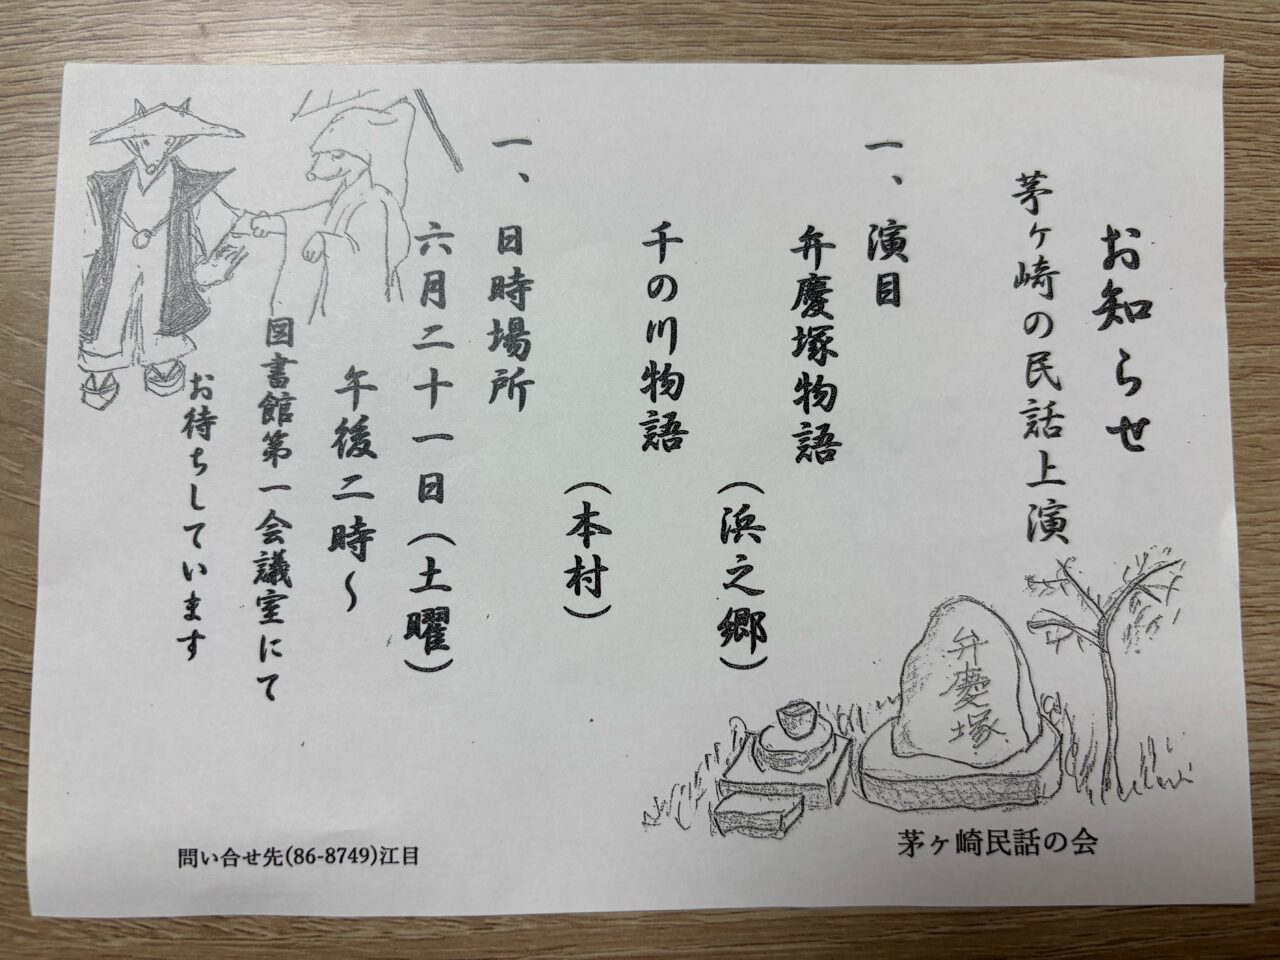 お知らせ
茅ヶ崎の民話上演
一、演目
弁慶塚物語
(浜之郷)
千の川物語
(本村)
一、日時場所
六月二十一日(土曜)
午後二時～
図書館第一会議室にて
お待ちしています
弁慶塚
茅ヶ崎民話の会
問い合せ先(86-8749)江目